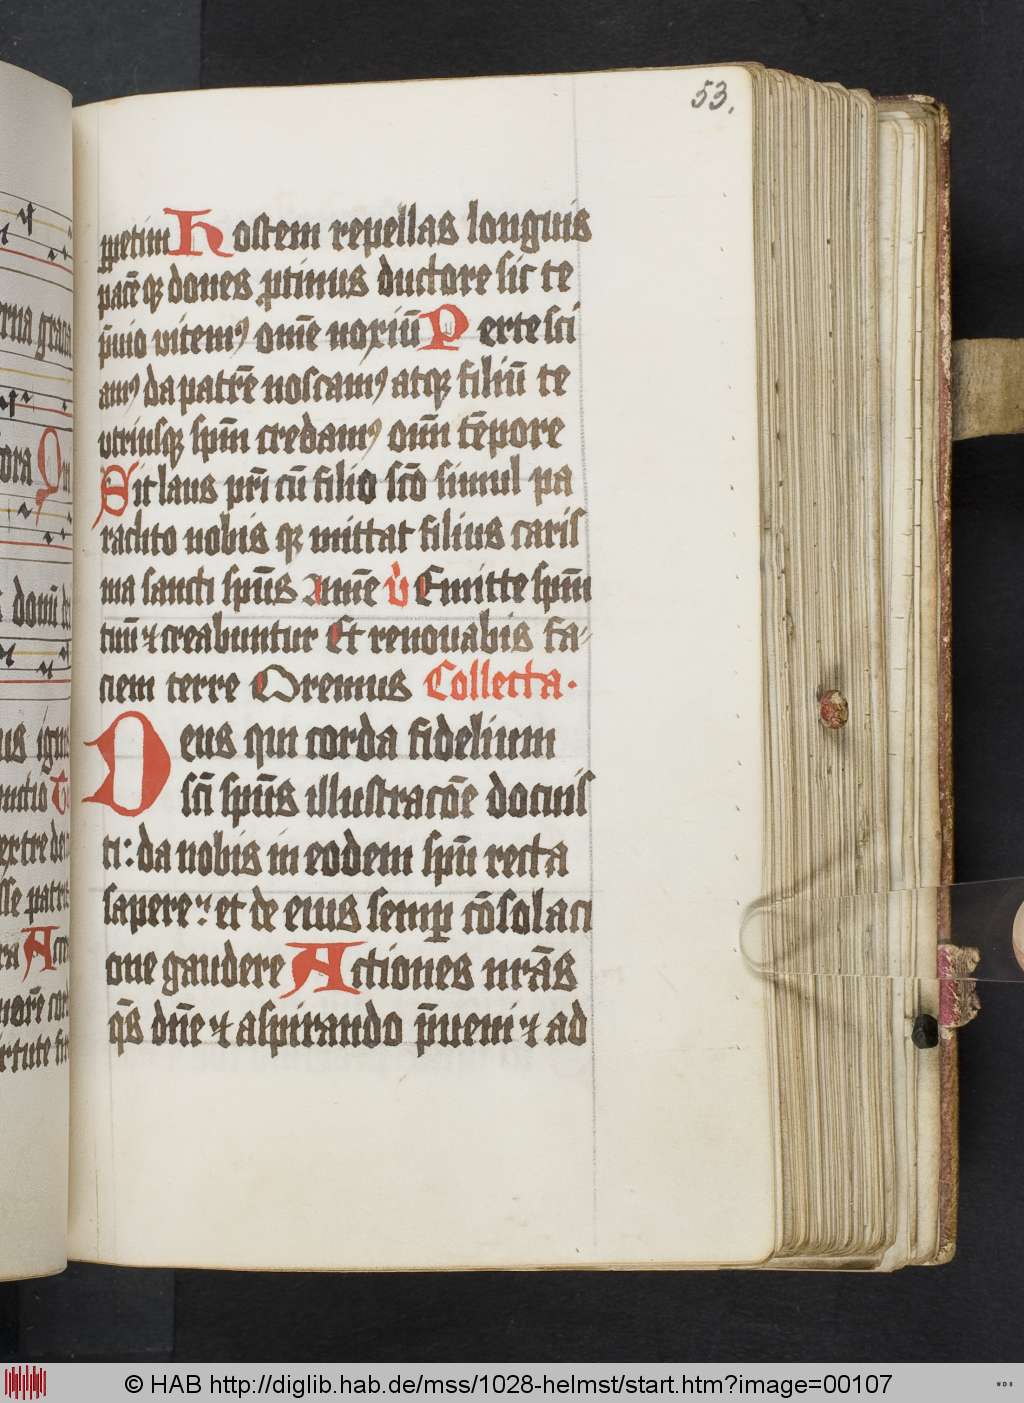 53.
ꝑpetim Hostem repellas longius
pacē qꝫ dones ꝓtinus ductore sic te
p̄uio vitemꝰ om̄e noxiū Per te sci
amꝰ da patrē noscamꝰ atqꝫ filiū te
utriusqꝫ spm̄ credamꝰ om̄i tēpore
Sit laus pr̄i cū filio sc̄o simul pa
raclito nobis qꝫ mittat filius caris
ma sancti spūs Amē v̄ Emitte spm̄
tuū ⁊ creabuntur Et renouabis fa⸗
ciem terre Oremus Collecta·
Deus qui corda fidelium
sc̄i spūs illustracōe docuis
ti: da nobis in eodem spū recta
sapere: et de eius semꝑ cōsolaci
one gaudere Actiones nr̄as
qs̄ dn̄e ⁊ aspirando p̄ueni ⁊ ad
erna
ora
donū
us
unctio
extre
sse patr
ra
tute
© HAB http://diglib.hab.de/mss/1028-helmst/start.htm?image=00107